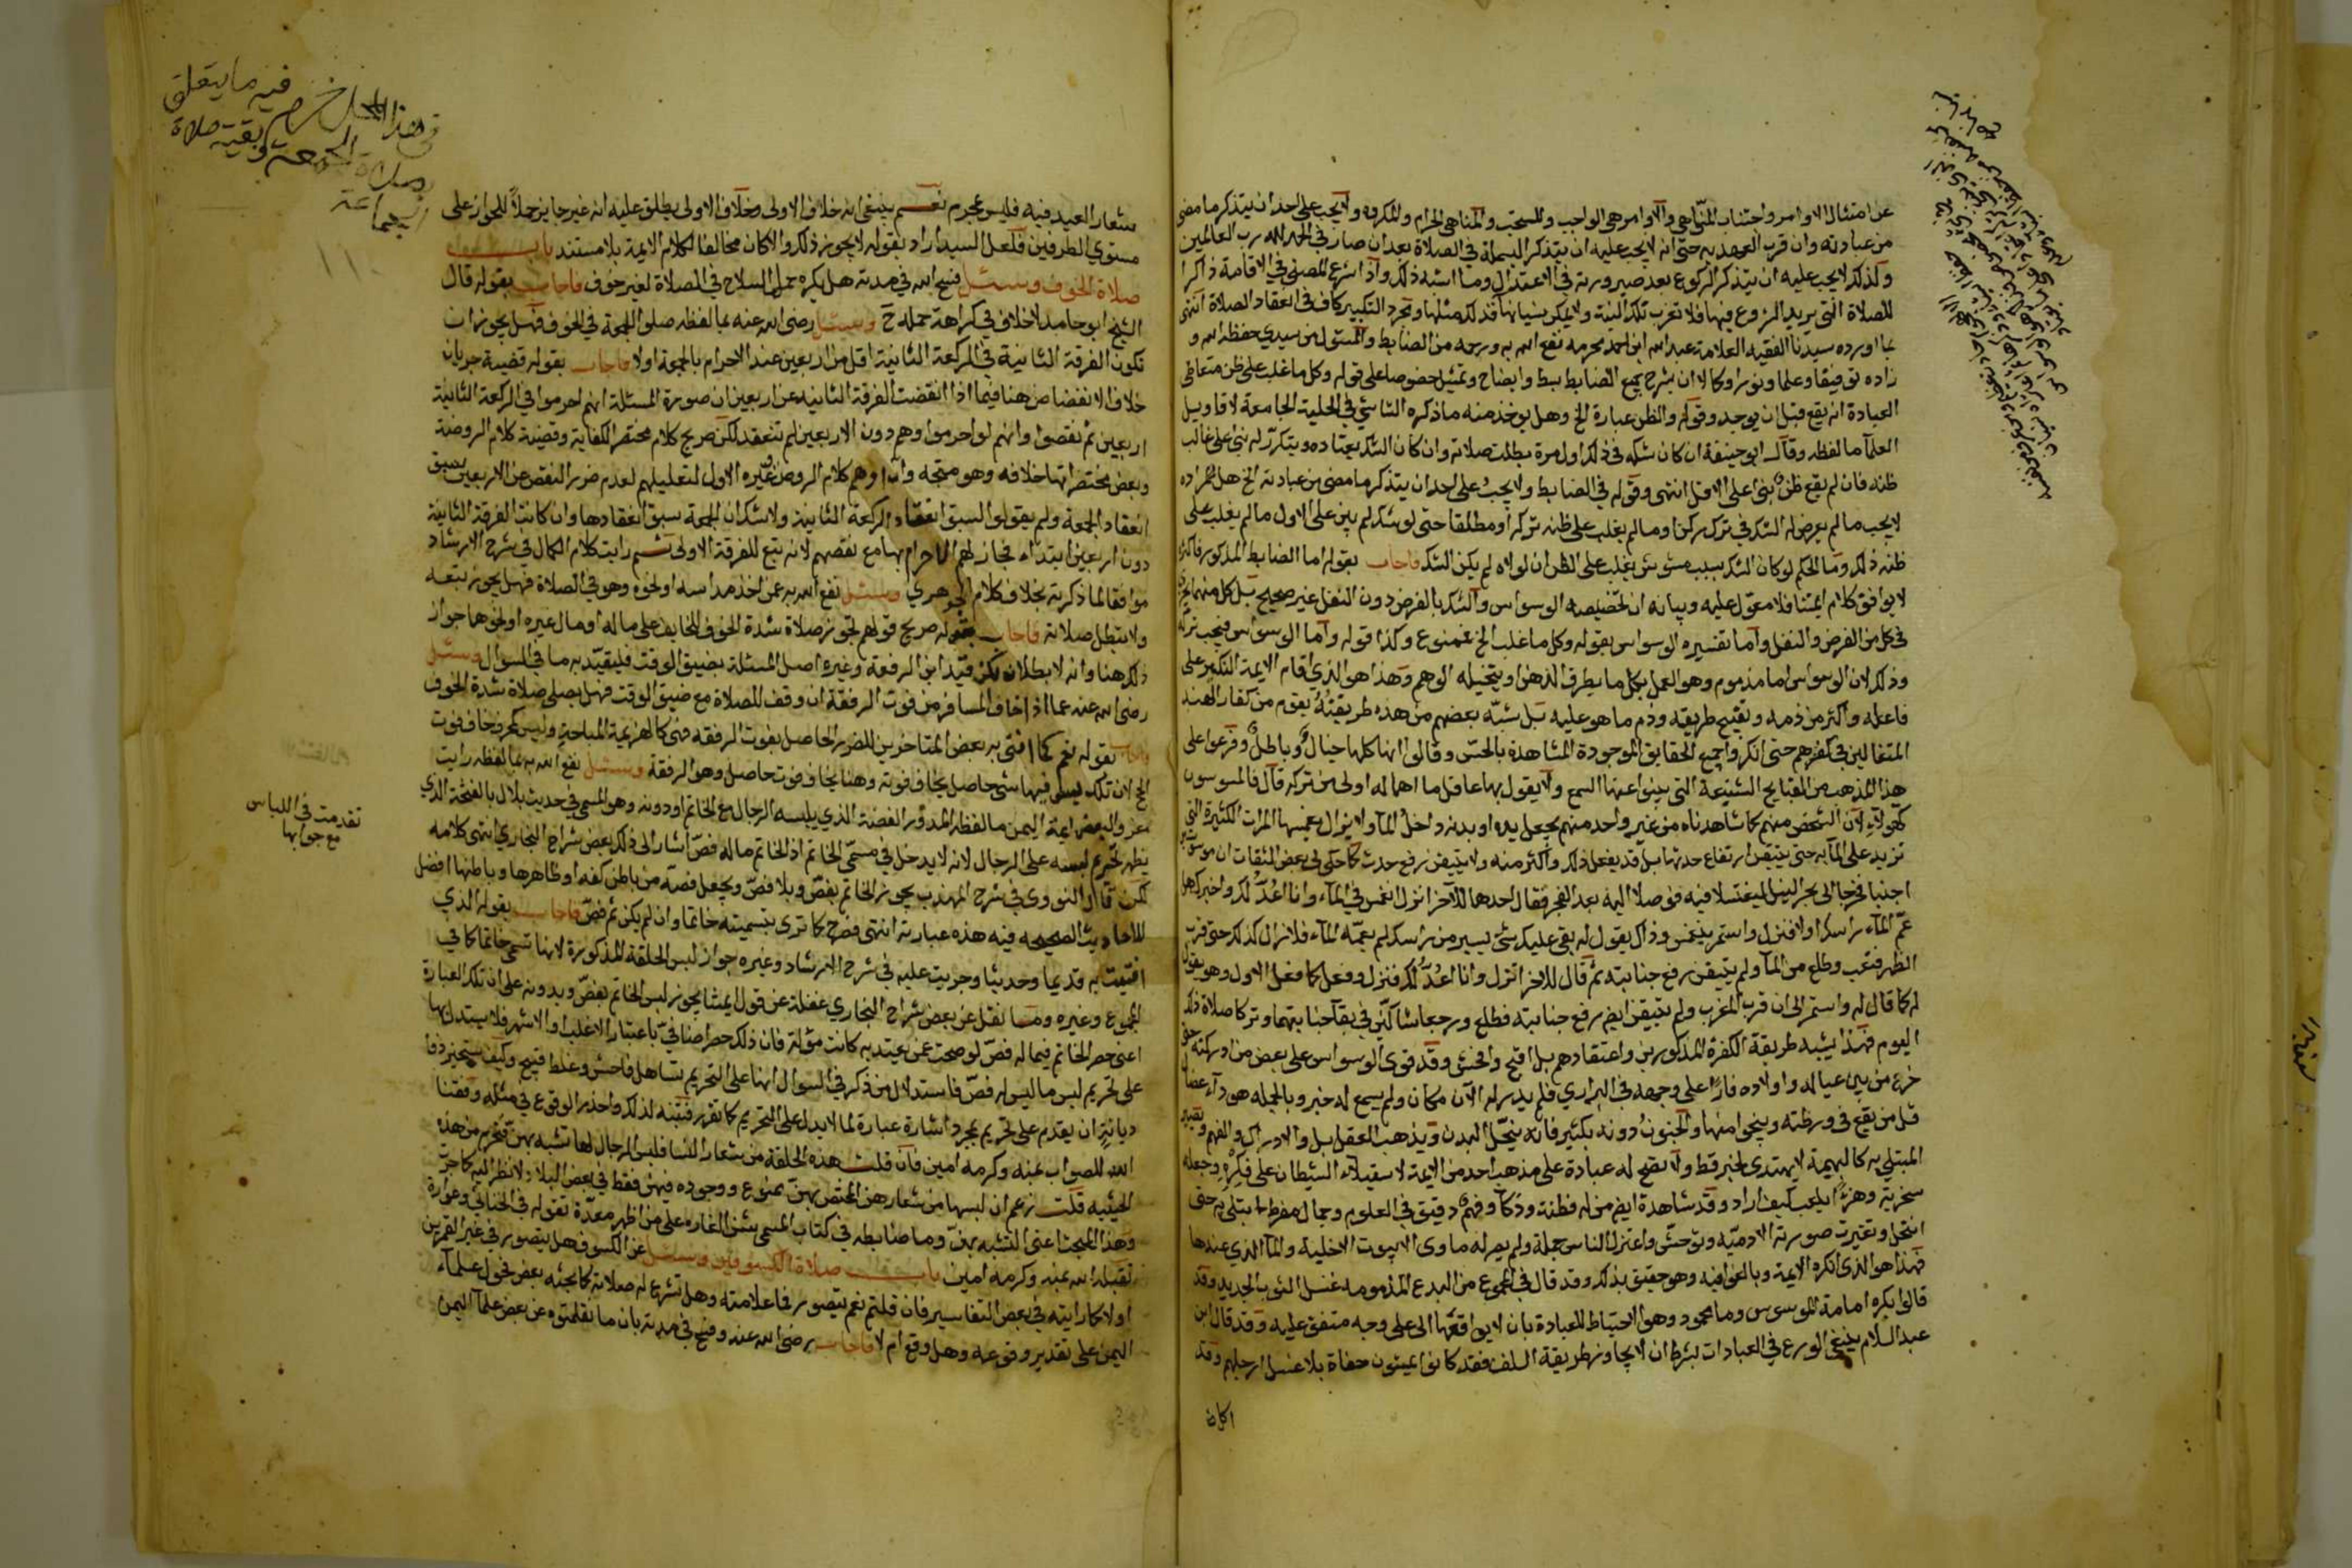 عن امتثال الاوامر واجتناب المناهي والاوامر هي الواجب والمستحب والمناهي الحرام والمكروه ولا يجب على احد ان يتذكر ما مضى
من عبادته وان قرب العهد به حتى انه لا يجب عليه ان يتذكر البسملة في الصلاة بعد ان صار في الحمد لله رب العالمين
وكذلك لا يجب عليه ان يتذكر الركوع بعد صيرورته في الاعتدال وما اشبه ذلك واذا شرع المصلي في الاقامة ذاكرا
للصلاة التي يريد الشروع فيها فلا تغرب تلك النية ولا يمكن نسيانها قدر ذلك مثلها وتجرد التكبير كاف في انعقاد الصلاة انتهى
ما اورده سيدنا الفقيه العلامة عبد الله ابن احمد مخرمه نفع الله به ورحمه من الضابط والمسئول من سيدي حفظه الله و
زاده توفيقا وعلما ونورا وكمالا ان يشرح جميع الضابط ببسط وايضاح وتمثيل خصوصا على قوله وكل ما غلب على ظن متعاطي
العبادة انه يقع قبل ان يوجد وقوله والظن عبارة الخ وهل يوخذ منه ما ذكره الشاشي في الحلية الجامعة لاقاويل
العلماء ما لفظه وقال ابو حنيفة ان كان شكه في ذلك اول مرة بطلت صلاته وان كان الشك يعتاده ويتكرر له بنى على غالب
ظنه فان لم يقع ظن بنى على الاقل انتهى وقوله في الضابط ولا يجب على احد ان يتذكر ما مضى من عبادته الخ هل مراده
لا يجب ما لم يعرض له الشك في ترك ركن او ما لم يغلب على ظنه تركه او مطلقا حتى لو شك لم يبن على الاول ما لم يغلب على
ظنه ذلك وما الحكم لو كان الشك بسبب مشوش يغلب على الظن ان لولاه لم يكن الشك فاجاب بقوله اما الضابط المذكور فاكثره
لا يوافق كلام ائمتنا فلا معول عليه وبيانه ان تخصيصه الوسواس والشك بالفرض دون النفل غير صحيح بل كل منهما يجري
في كل من الفرض والنفل واما تفسيره الوسواس بقوله وكل ما غلب الخ فممنوع وكذا قوله واما الوسواس فيجب تركه
وذلك لان الوسواس اما مذموم وهو العمل بكل ما يطرق الذهن او يتخيله الوهم وهذا هو الذي اقام الايمة النكير على
فاعله واكثر من ذمه وتقبيح طريقه وذم ما هو عليه بل شبه بعضهم من هذه طريقته بقوم من كفار الهند
المتغالين في كفرهم حتى انكروا جميع الحقايق الموجودة المشاهدة بالحس وقالوا انها كلها خيال وباطل وفرعوا على
هذا المذهب من القبايح الشنيعة التي ينبو عنها السمع ولا يقول بها عاقل ما اهماله اولى من تركه قال فالموسوس
كهولاء لان الشخص منهم كما شاهدناه من غير واحد منهم يجعل يده او بدنه داخل الماء ولا يزال يغمسها المرات الكثيرة التي
تزيد على الماية حتى يتيقن ارتفاع حدثها بل قد يفعل ذلك واكثر منه ولا يتيقن رفع حدث كما حكى لي بعض الثقات ان موسوسا
اجنبا فخرجا الى بحر النيل ليغتسلا فيه فوصلا اليه بعد الفجر فقال احدهما للآخر انزل انغمس في الماء وانا اعد لك واخبرك هل
عم الماء راسك او لا فنزل واستمر ينغمس وذاك يقول له بقي عليك شيء يسير من راسك لم يعمه الماء فلا زال كذلك حتى قرب
الظهر فتعب وطلع من الماء ولم يتيقن رفع جنابته ثم قال للاخر انزل وانا اعد لك فنزل وفعل كما فعل الاول وهو يقول
له كما قال له واستمر الى ان قرب المغرب ولم يتيقن ايضا رفع جنابته فطلع ورجعا شاكين في بقاء جنابتهما وتركا صلاة ذلك
اليوم فهذا يشبه طريقة الكفرة المذكورين واعتقادهم بل اقبح وافحش وقد قوى الوسواس على بعض من ادركته حتى
خرج من بين عياله واولاده فارا على وجهه في البراري فلم يدر له الآن مكان ولم يسمع له خبر وبالجملة هو داء عضال
قل من يقع في ورطته وينجو منها والجنون دونه بكثير فانه ينحل البدن ويذهب العقل بل والادراك والفهم ويصير
المبتلى به كالبهيمة لا يهتدى لخير قط ولا تصح له عبادة على مذهب احد من الايمة لاستيلاء الشيطان على فكره وجعله
سخرية وهزءا يلعب كيف اراد وقد شاهدت ايضا من له فطنة وذكاء وفهم دقيق في العلوم وجمال مفرط ابتلي به حتى
انتحل وتغيرت صورته الادمية وتوحش واعتزل الناس جملة ولم يصر له ماوى الا بيوت الاخلية والماء الذي عندها
فهذا هو الذي انكره الايمة وبالغوا فيه وهو حقيق بذلك وقد قال في المجموع من البدع المذمومه غسل الثوب الجديد وقد
قالوا يكره امامة الموسوس وما محمود وهو الاحتياط للعبادة بان لا يواقعها الا على وجه متفق عليه وقد قال ابن
عبد السلام ينبغي الورع في العبادات بشرط ان لا يجاوز طريقة السلف فقد كانوا يمشون حفاة بلا غسل ارجلهم وقد
اكان
في هذا المحل خرم فيه ما يتعلق
بصلاة الجمعة وبقية صلاة
الجماعة
١١٠
شعار العيد فيه فليس بمحرم نعم ينبغي انه خلاف الاولى وخلاف الاولى يطلق عليه انه غير جايز حملا للجواز على
مستوي الطرفين فلعل السيد اراد بقوله لا يجوز ذلك والا كان مخالفا لكلام الايمة بلا مستند باب
صلاة الخوف وسئل فسح الله في مدته هل يكره حمل السلاح في الصلاة لغير خوف فاجاب بقوله قال
الشيخ ابو حامد لا خلاف في كراهة حمله ح وسئل رضي الله عنه بما لفظه صلوا الجمعة في الخوف فهل يجوز ان
تكون الفرقة الثانية في الركعة الثانية اقل من اربعين عند الاحرام بالجمعة او لا فاجاب بقوله قضية جريان
خلاف الانفضاض هنا فيما اذا انقضت الفرقة الثانية عن اربعين ان صورة المسئلة انهم احرموا في الركعة الثانية
اربعين ثم نقصوا وانهم لو احرموا وهم دون الاربعين لم تنعقد لكن صريح كلام مختصر الكفاية وقضية كلام الروضة
وبعض مختصراتها خلافه وهو متجه وان اوهم كلام الروض وغيره الاول لتعليلهم لعدم ضرر النقص عن الاربعين بسبق
انعقاد الجمعة ولم يقولوا لسبق انعقاد الركعة الثانية ولا شك ان الجمعة سبق انعقادها وان كانت الفرقة الثانية
دون اربعين ابتداء فجاز لهم الاحرام بها مع نقصهم لانه تبع للفرقة الاولى ثم رايت كلام الكمال في شرح الارشاد
موافقا لما ذكرته بخلاف كلام الجوهري وسئل نفع الله به عمن اخذ مداسه او نحوه وهو في الصلاة فهل يجوز يتبعه
ولا تبطل صلاته فاجاب بقوله صريح قولهم تجوز صلاة شدة الخوف للخايف على ماله او مال غيره او نحوها جواز
ذلك هنا وانه لا بطلان لكن قيد ابن الرفعة وغيره اصل المسئلة بضيق الوقت فليقيد به ما في السوال وسئل
رضي الله عنه عما اذا خاف المسافر من فوت الرفقة ان وقف للصلاة مع ضيق الوقت فهل يصلي صلاة شدة الخوف
فاجاب بقوله نعم كما افتى به بعض المتاخرين للضرر الحاصل بفوت الرفقه فهي كالهزيمة المباحة وليس كمحرم خاف فوت
الحج لان تلك ليس فيها شيء حاصل يخاف فوته وهنا يخاف فوت حاصل وهو الرفقة وسئل نفع الله به بما لفظه رايت
معزوا لبعض ايمة اليمن ما لفظه المدور الفضة الذي يلبسه الرجال مع الخاتم او دونه وهو المسمى في حديث بلال بالفتخة الذي
يظهر تحريم لبسه على الرجال لانه لا يدخل في مسمى الخاتم اذ الخاتم ما له فص اشار الى ذلك بعض شراح البخاري انتهى كلامه
لكن قال النووي في شرح المهذب يجوز الخاتم بفص وبلا فص ويجعل فصه من باطن كفه او ظاهرها وباطنها افضل
للاحاديث الصحيحه فيه هذه عبارته انتهى فصرح كما ترى بتسميته خاتما وان لم يكن ثم فص فاجاب بقوله الذي
افتيت به قديما وحديثا وجريت عليه في شرح الارشاد وغيره جواز لبس الحلقة المذكورة لانها تسمى خاتما كما في
المجموع وغيره وما نقل عن بعض شراح البخاري غفلة عن قول ايمتنا يجوز لبس الخاتم بفص وبدونه على ان تلك العبارة
اعني حصر الخاتم فيما له فص لو صحت عمن يعتد به كانت مؤلة فان ذلك حصر اضافي باعتبار الاغلب او الاشهر فلا يستدل بها
على تحريم لبس ما ليس له فص فاستدلال من ذكر في السوال بها على التحريم تساهل فاحش وغلط قبيح وكيف يستجيز ذو
ديانة ان يقدم على تحريم بمجرد اشارة عبارة لما لا يدل على التحريم كما تقرر فتنبه لذلك واحذر الوقوع في مثله وفقنا
الله للصواب بمنه وكرمه امين فان قلت هذه الحلقة من شعار النسا فلبس الرجال لها تشبه بهن فتحرم من هذه
الحيثيه قلت زعم ان لبسها من شعارهن المختص بهن ممنوع ووجوده فيهن فقط في بعض البلاد لا نظر اليه كما حرت
وهذا المبحث اعني التشبه بهن وما ضابطه في كتاب المسمى بشن الغاره على من اظهر معرة تقوله في الحنا وعواره
تقبله الله بمنه وكرمه امين باب صلاة الكسوفين وسئل عن الكسوف هل يتصور في غير القمرين
او لا كما رايته في بعض التفاسير فان قلتم نعم يتصور فما علامته وهل تشرع له صلاة كما بحثه بعض فحول علماء
اليمن على تقدير وقوعه وهل وقع ام لا فاجاب رضي الله عنه وفسح في مدته بان ما نقلتموه عن بعض علماء اليمن
تقدمت في اللباس
مع جوابها